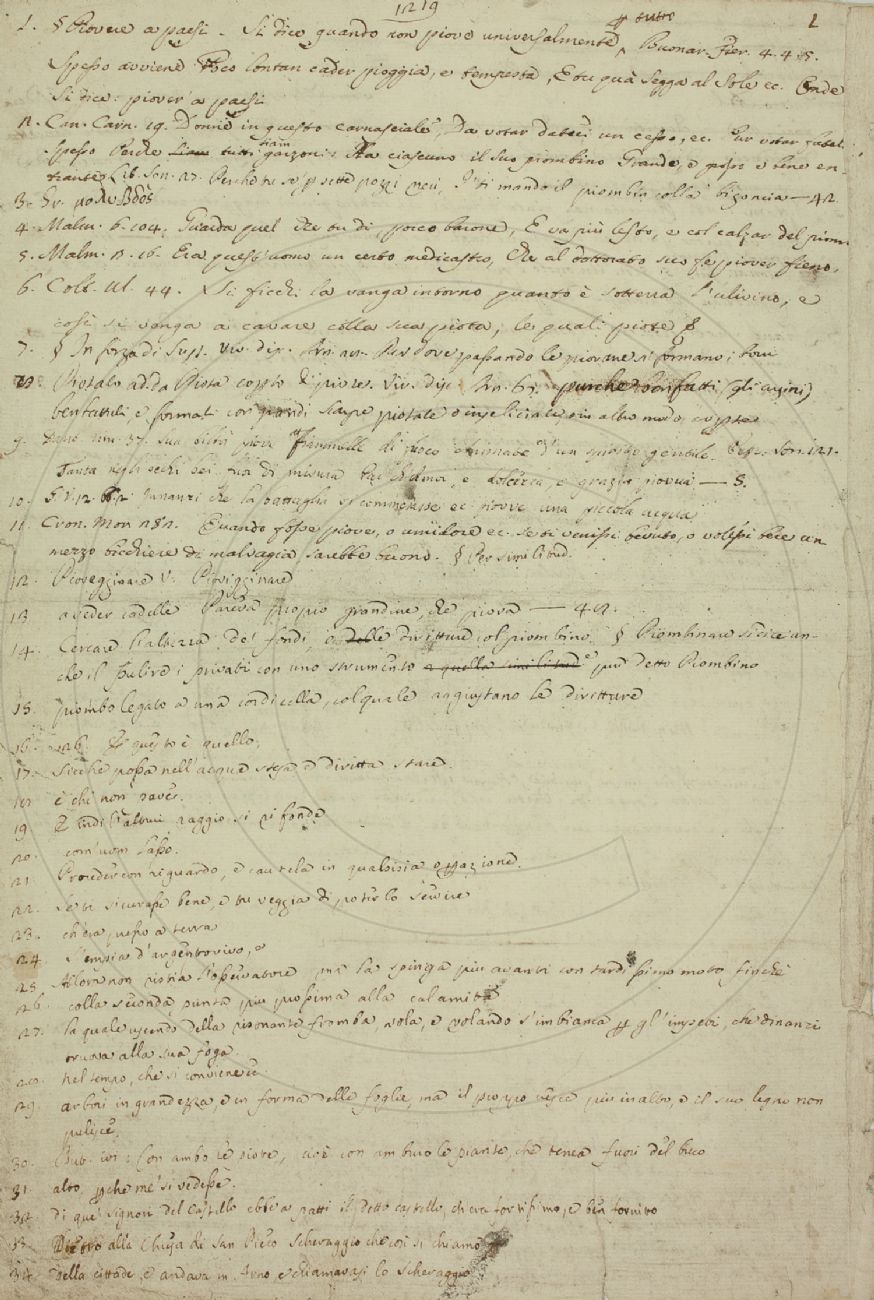 1219
1
1. § Piovere a paesi. Si dice quando non piove universalmente per tutto, Buonar. Fier. 4. 4. 5.
Spesso avviene Poco lontan cader pioggia, e tempesta, E tu quà segga al Sole ec. Onde
si dice: piover' a paesi
2. Can. Carn. 19. Donne in questo carnasciale, Da votar dateci un cesso, ec. Pur votar
spesso Perchè tutti siam garzoni: Ha ciascuno il suo piombino Grande, e grosso e bene en-
trante. Lib. Son. 27. Perchè tu se' sette pozzi neri, I' ti mando il piombin colla bigoncia — 42.
3. Gr.
4. Malm. 6. 104. Guarda quel che tu di, porco barone, E va più lesto, e col calzar del piom.
5. Malm. 16. Era quest'uomo un certo medicastro, Che al dottorato suo fe piover fieno.
6. Colt. Ul. 44. Si ficchi la vanga intorno quanto è sotterra l'ulivino, e
così si venga a cavare colla sua piota, le quali piote §
7. § In forza di Sust. Viv. disc. Arn. Per dove passando le piovane si formano
Piotato add. da Piota coperto di piote. Viv. disc. Arn. purchè ben fatti (gli argini)
ben fatti, e formati con grandi scarpe piotate o in altro modo coperte
9. fiammelle di fuoco d'un spirito gentile. Petr. Son. 121.
Tanta negli occhi bei fuor di misura Par ch'Amor, e dolcezza, e grazia piova — S.
10. G. V. 12. Innanzi che la battaglia si cominciasse ec. piovve una piccola acqua
11. Cron. Mor. 282. Quando fosse piova, o umidore ec. se ti venissi bevuto, o volessi bere un
mezzo bicchiere di malvagia sarebbe buono. § Per similitud.
12. Pioveggnare V. Piovigginare
13 a veder cadelle Pareva proprio grandine, che piova — 42.
14. Cercare l'altezza de' fondi, o delle diritture col piombino. § Piombinare si dice an-
che il pulire i privati con uno strumento a quella similitud e pur detto Piombino
15. piombo legato a una cordicella, col quale aggiustano le diritture
16. E questo è quello,
17. Sicchè possa nell'acqua stesa, e diritta stare.
18 è chi non pave.
19. E indi l'altrui raggio si rifonde
20. com'uom sapo.
21. Proceder con riguardo, e cautela in qualsisia operazione.
22. Se ti sicurassi bene, e tu veggia di poterlo servire
23. ch'era presso a terra
24. S'empia d'argentovivo, e
25. Allora non ristia l'osservatore ma la spinga più avanti con tardissimo moto finchè
26. colla seconda punta più prossima alla calamita
27. la quale uscendo della risonante fromba, vola, e volando s'imbianca per gl'impeti, che dinanzi
truova alla sua foga.
28. nel tempo, che si conviene
29. arbori in grandezza, e in forma delle foglie, ma il pioppo cresce più in alto, e il suo legno non
pulisce.
30. But. ivi: Con ambo le piote, cioè con ambedue le piante, che tenea fuori del buco
31. alto, perche me' si vedesse.
32. di que' signori del castello ebbe a patti il detto castello, ch'era fortissimo, e ben fornito
33. Dietro alla Chiesa di San Piero Scheraggio che così si chiamò
34. della cittade, e andava in Arno e chiamavasi lo Scheraggio